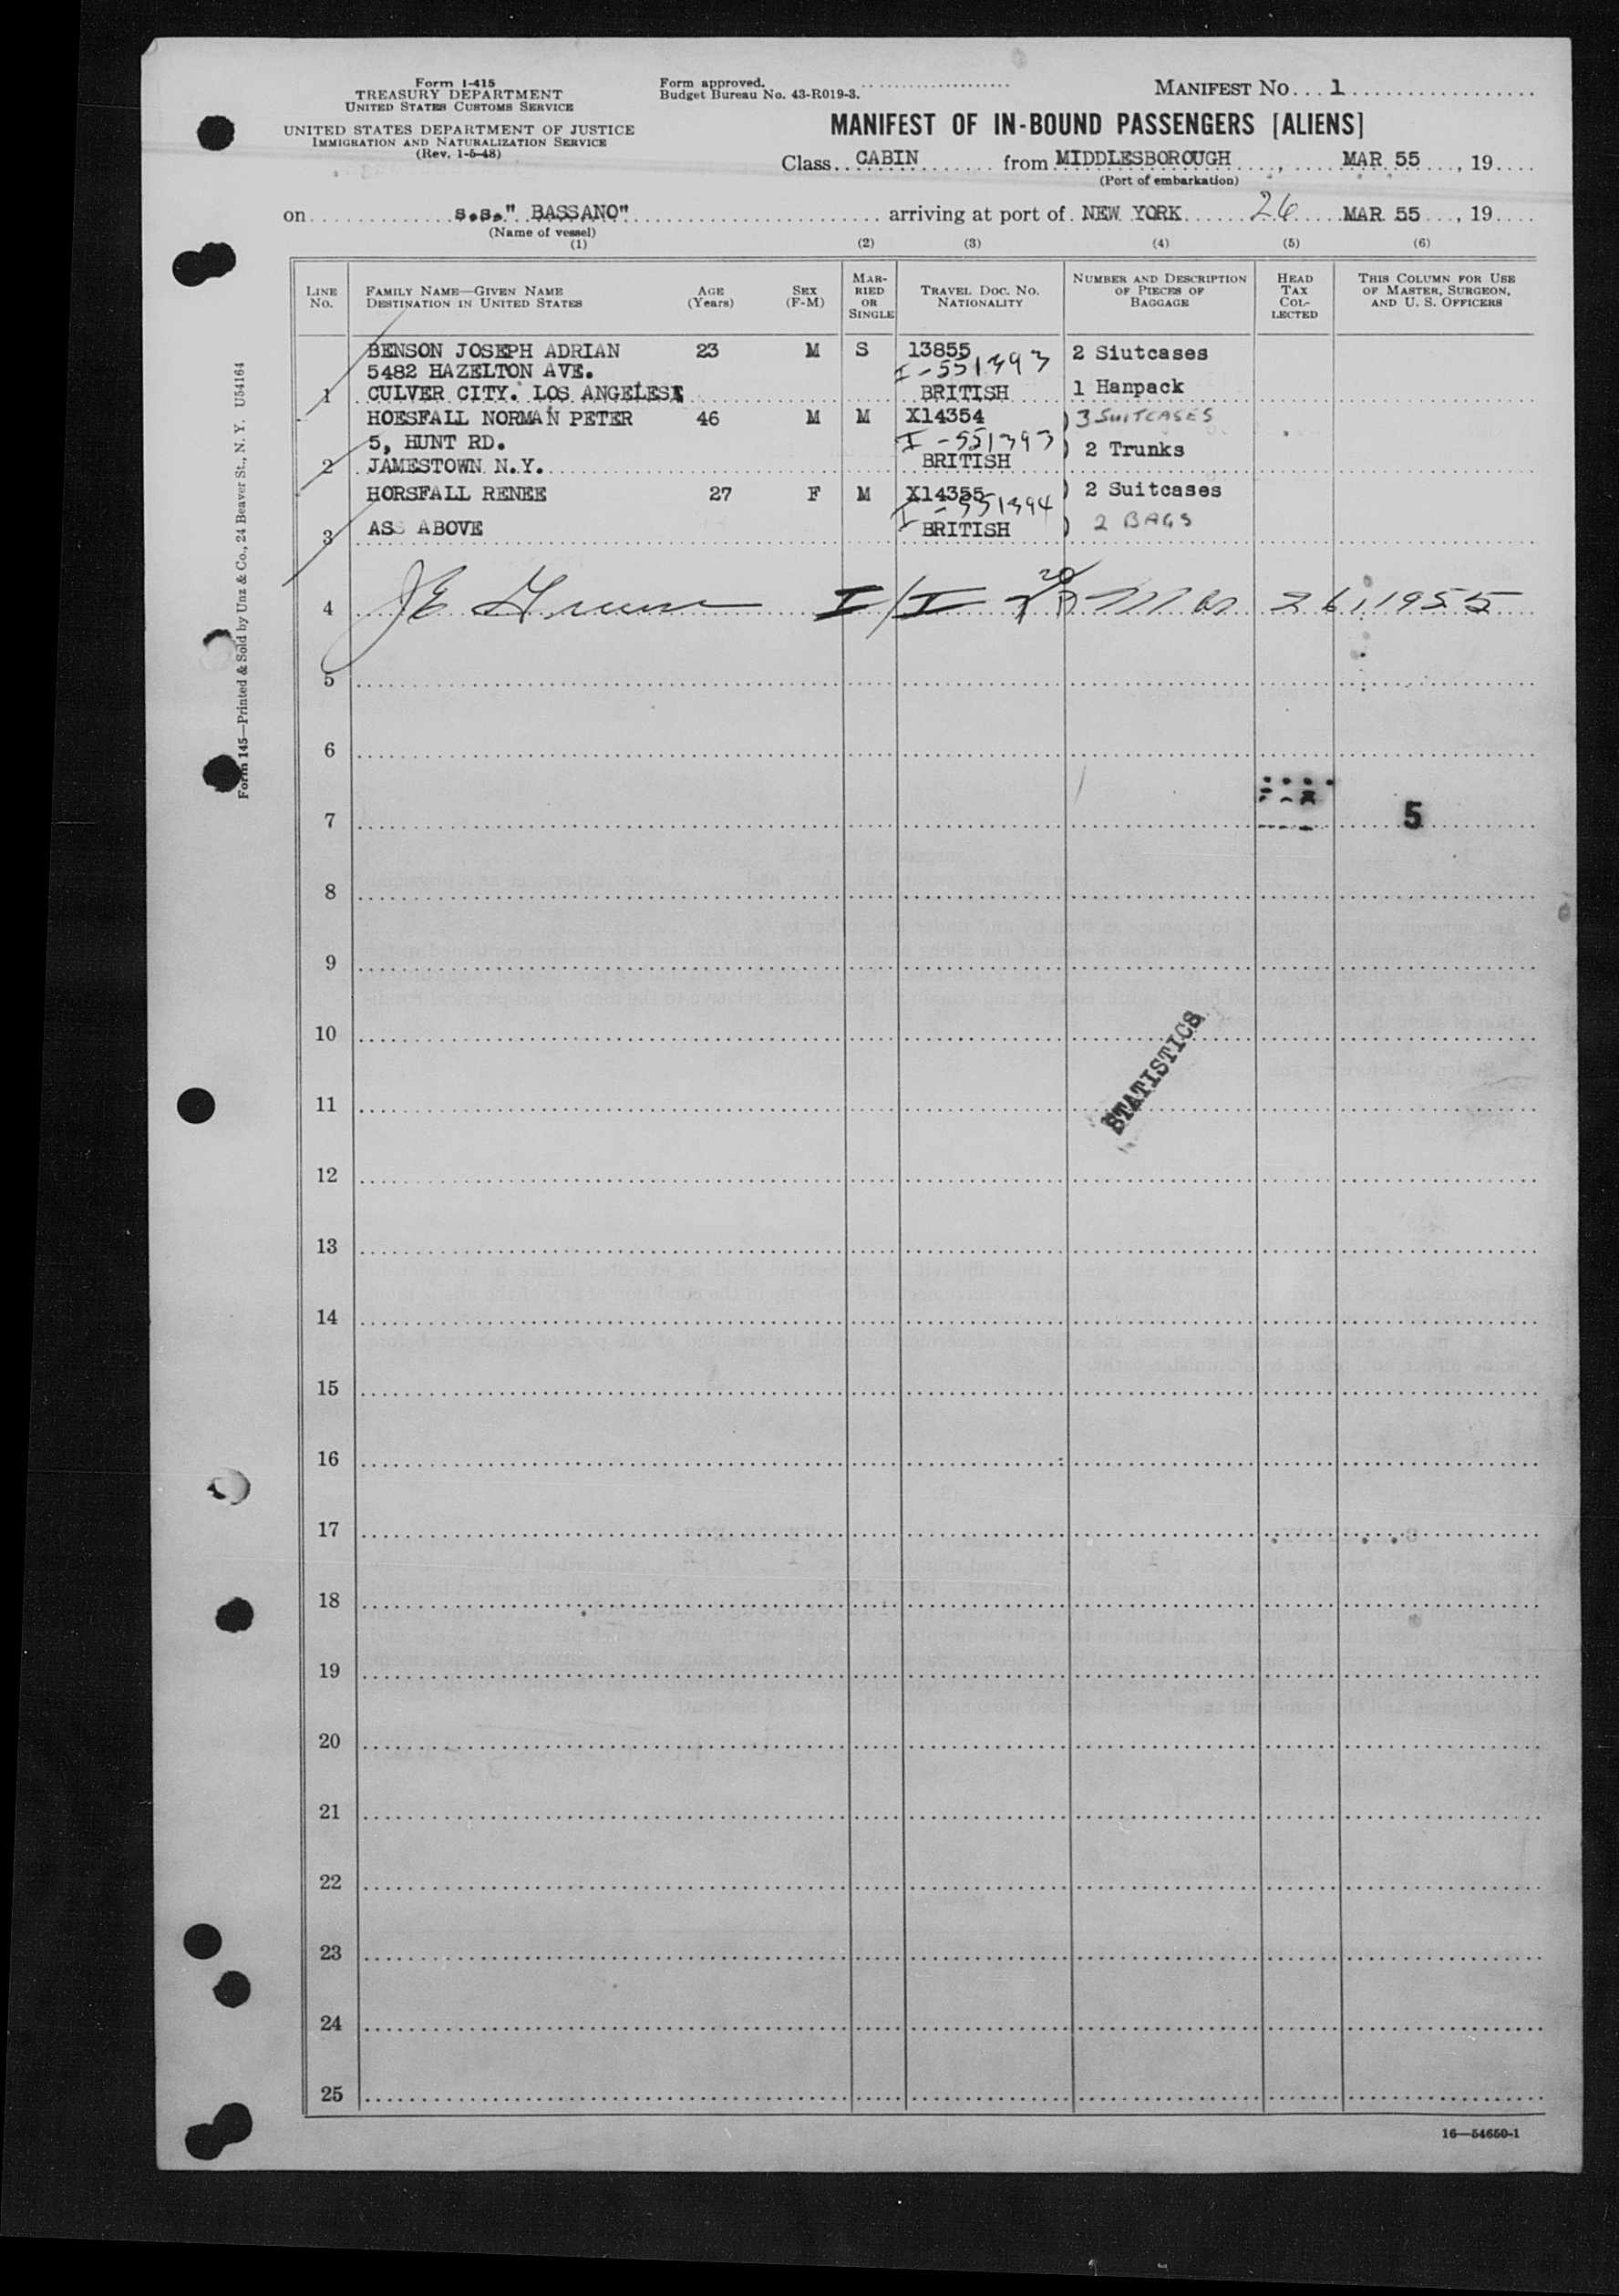 Form I-415
TREASURY DEPARTMENT
UNITED STATES CUSTOMS SERVICE
UNITED STATES DEPARTMENT OF JUSTICE
IMMIGRATION AND NATURALIZATION SERVICE
(Rev. 1-5-48)
Form approved.
Budget Bureau No. 43-R019-3.
MANIFEST NO. 1
MANIFEST OF IN-BOUND PASSENGERS [ALIENS]
Class CABIN from MIDDLESBOROUGH, MAR 55, 19
(Port of embarkation)
on s.s." BASSANO" arriving at port of NEW YORK 26 MAR 55, 19
(Name of vessel)
(1) (2) (3) (4) (5) (6)
LINE No. FAMILY NAME—GIVEN NAME DESTINATION IN UNITED STATES AGE (Years) SEX (F-M) MARRIED OR SINGLE TRAVEL DOC. NO. NATIONALITY NUMBER AND DESCRIPTION OF PIECES OF BAGGAGE HEAD TAX COLLECTED THIS COLUMN FOR USE OF MASTER, SURGEON, AND U. S. OFFICERS
BENSON JOSEPH ADRIAN 23 M S 13855 2 Siutcases
5482 HAZELTON AVE. I-551393
1 CULVER CITY. LOS ANGELES BRITISH 1 Hanpack
HOESFALL NORMAN PETER 46 M M X14354 ) 3 SUITCASES
5, HUNT RD. I-551393
2 JAMESTOWN N.Y. BRITISH ) 2 Trunks
HORSFALL RENEE 27 F M X14355 ) 2 Suitcases
I-551394
3 ASS ABOVE BRITISH ) 2 BAGS
4 I/I Mar 26, 1955
5
6
7 5
8
9
10
STATISTICS
11
12
13
14
15
16
17
18
19
20
21
22
23
24
25
16—54650-1
Form 145—Printed & Sold by Unz & Co., 24 Beaver St., N. Y. U54164